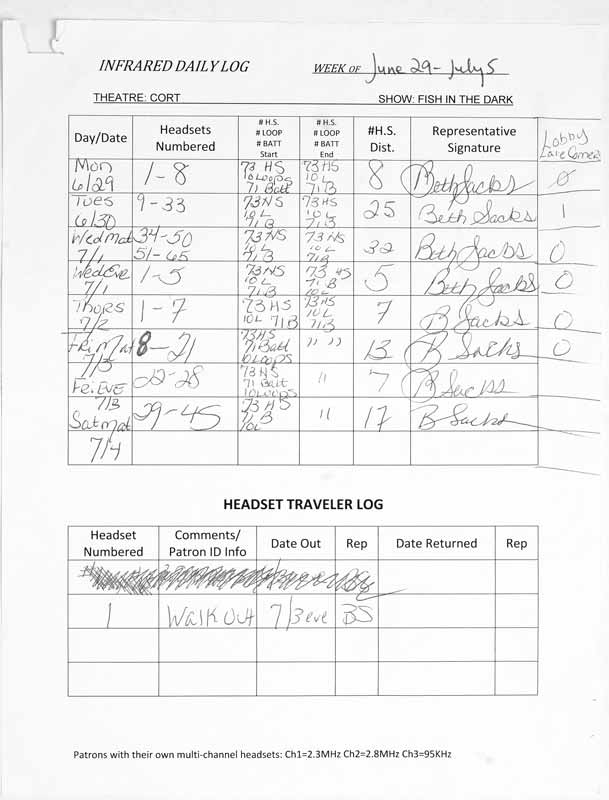 INFRARED DAILY LOG WEEK OF June 29 - July 5
THEATRE: CORT SHOW: FISH IN THE DARK
Day/Date
Headsets Numbered
# H.S. # LOOP # BATT Start
# H.S. # LOOP # BATT End
#H.S. Dist.
Representative Signature
Lobby
Mon 6/29 1-8 73 HS 10 Loops 71 Batt 73 HS 10 L 71 B 8 Beth Sacks 0
Tues 6/30 9-33 73 HS 10 L 71 B 73 HS 10 L 71 B 25 Beth Sacks 1
Wed Mat 7/1 34-50 51-65 73 HS 10 L 71 B 73 HS 10 L 71 B 32 Beth Sacks 0
Wed Eve 7/1 1-5 73 HS 10 L 71 B 73 HS 71 B 10 L 5 Beth Sacks 0
Thurs 7/2 1-7 73 HS 10 L 71 B 73 HS 10 L 71 B 7 B Sacks 0
Fri Mat 7/3 8-21 73 HS 71 Batt 10 Loops " " " 13 B Sacks 0
Fri. Eve 7/3 22-28 73 HS 71 Batt 10 Loops " 7 B Sacks
Sat Mat 7/4 29-45 73 HS 71 B 10 L " 17 B Sacks
HEADSET TRAVELER LOG
Headset Numbered
Comments/ Patron ID Info
Date Out
Rep
Date Returned
Rep
1 Walk Out 7/3 eve BS
Patrons with their own multi-channel headsets: Ch1=2.3MHz Ch2=2.8MHz Ch3=95KHz